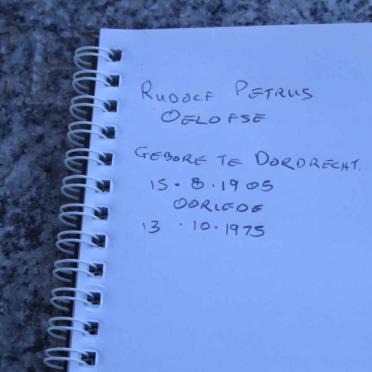 RUDOLF PETRUS
OELOFSE
GEBORE TE DORDRECHT.
15.8.1905
OORLEDE
13.10.1975